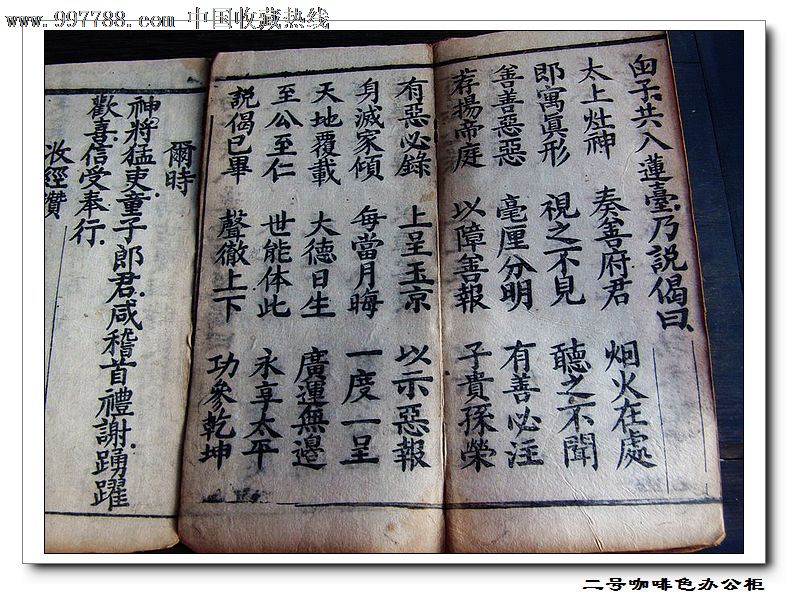 www.997788.com 中国收藏热线
子共入蓮臺乃說偈曰
太上灶神 奏善府君 炯火在處
即寓真形 視之不見 聽之不聞
善善惡惡 毫厘分明 有善必注
荐揚帝庭 以障善報 子貴孫榮
有惡必錄 上呈玉京 以示惡報
身滅家傾 每當月晦 一度一呈
天地覆載 大德日生 廣運無邊
至公至仁 世能体此 永享太平
說偈已畢 聲徹上下 功參乾坤
爾時
神將猛吏童子郎君咸稽首禮謝踴躍
歡喜信受奉行
收經讚
二号咖啡色办公柜